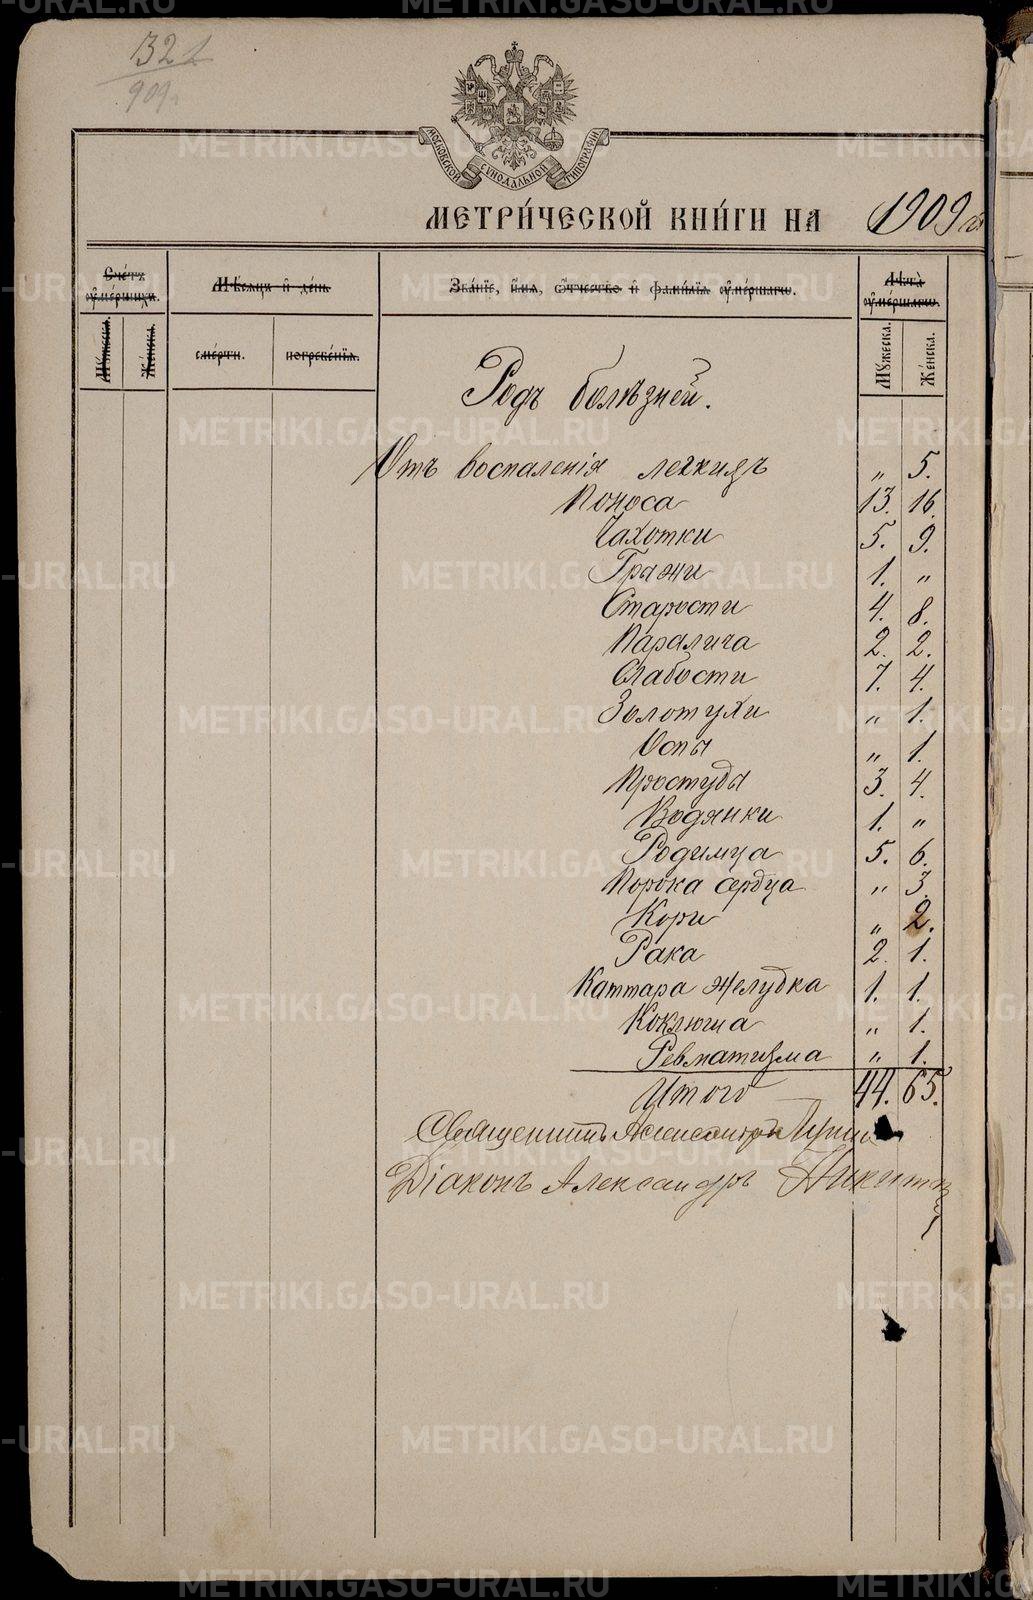 321
909 г.
МОСКОВСКОЙ СУНОДАЛЬНОЙ ТИПОГРАФІИ
МЕТРИ́ЧЕСКОЙ КНИ́ГИ НА 1909 г.
Сче́тъ оу҆ме́ршихъ.
Мѣ́сяцъ и҆ де́нь
Зва́ніе, и҆́мя, ѻ҆́тчество и҆ фами́лїя оу҆ме́ршагѡ.
Лѣ́та оу҆ме́ршагѡ.
Мꙋ́жеска.
Же́нска.
сме́рти.
погребе́нїя.
Мꙋ́жеска.
Же́нска.
Родъ болѣзней.
Отъ воспаленія легкихъ „ 5.
Поноса 13. 16.
Чахотки 5. 9.
Грыжи 1. „
Старости 4. 8.
Паралича 2. 2.
Слабости 7. 4.
Золотухи „ 1.
Оспы „ 1.
Простуды 3. 4.
Водянки 1. „
Родимца 5. 6.
Порока сердца „ 3.
Кори „ 2.
Рака 2. 1.
Каттара желудка 1. 1.
Коклюша „ 1.
Ревматизма „ 1.
Итого 44. 65.
Священникъ Александръ
Діаконъ Александръ Никитин
METRIKI.GASO-URAL.RU